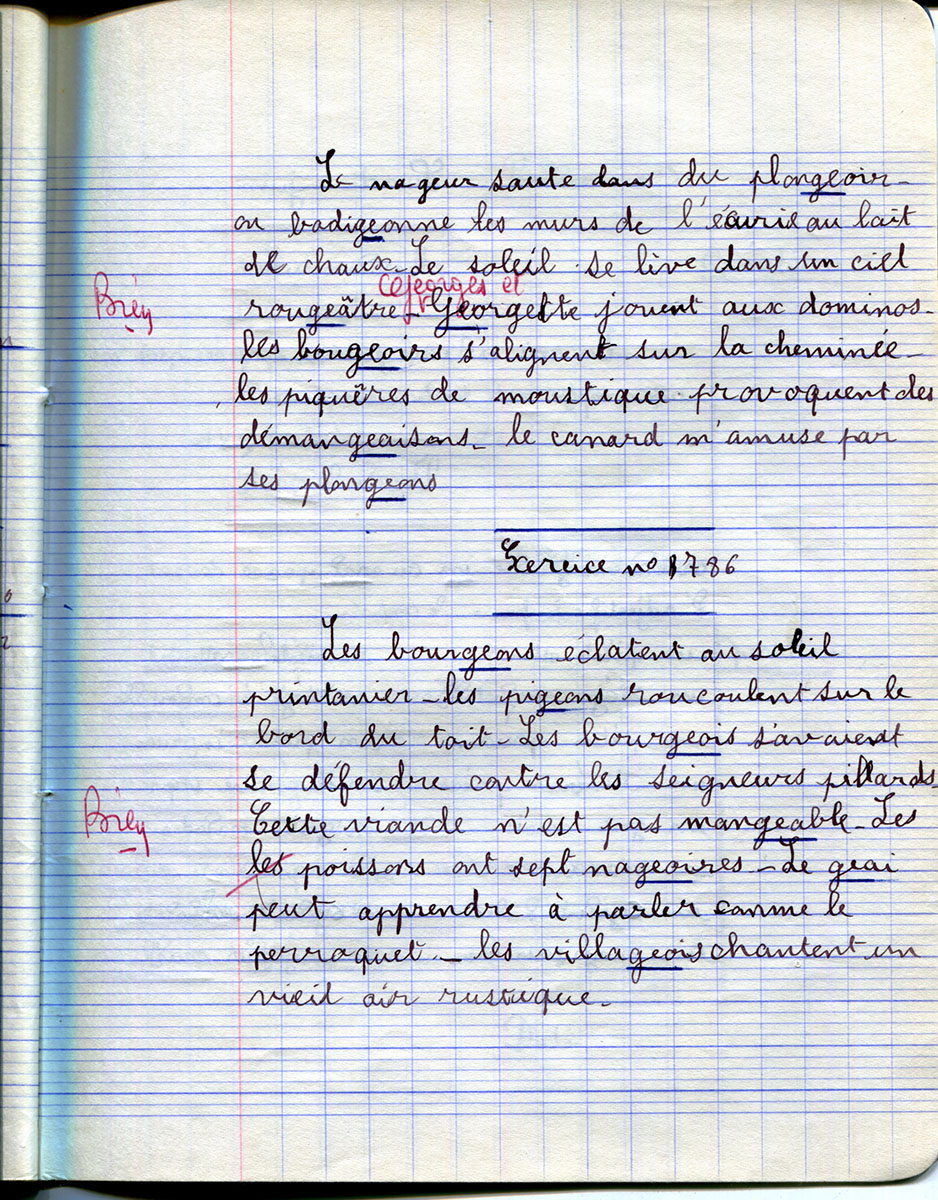 Le nageur saute dans du plongeoir_
on badigeonne les murs de l'écurie au lait
de chaux_Le soleil se lève dans un ciel
Georges et
Bien
rougeâtre_Georgette jouent aux dominos_
les bougeoirs s'alignent sur la cheminée_
les piqûres de moustique provoquent des
démangeaisons_ le canard m'amuse par
ses plongeons
Exercice no 1786
Les bourgeons éclatent au soleil
printanier_les pigeons roucoulent sur le
bord du toit_Les bourgeois savaient
se défendre contre les seigneurs pillards_
Bien
Cette viande n'est pas mangeable_Les
les poissons ont sept nageoires_Le geai
peut apprendre à parler comme le
perroquet_ les villageois chantent un
vieil air rustique_